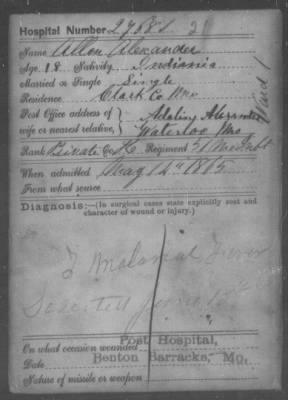 Hospital Number 27681 2
Name Allen Alexander
Age 18 Nativity Indiania
Married or Single Single
Residence Clark Co Mo
Post Office address of wife or nearest relative, Adeline Alexander
Waterloo Mo
Ward 1
Rank Private Co. K. Regiment 51 Mo
When admitted May 12" 1865
From what source
Diagnosis:—(In surgical cases state explicitly seat and
character of wound or injury.)
Malarial Fever
June
On what occasion wounded
Post Hospital,
Date
Benton Barracks, Mo.
Nature of missile or weapon